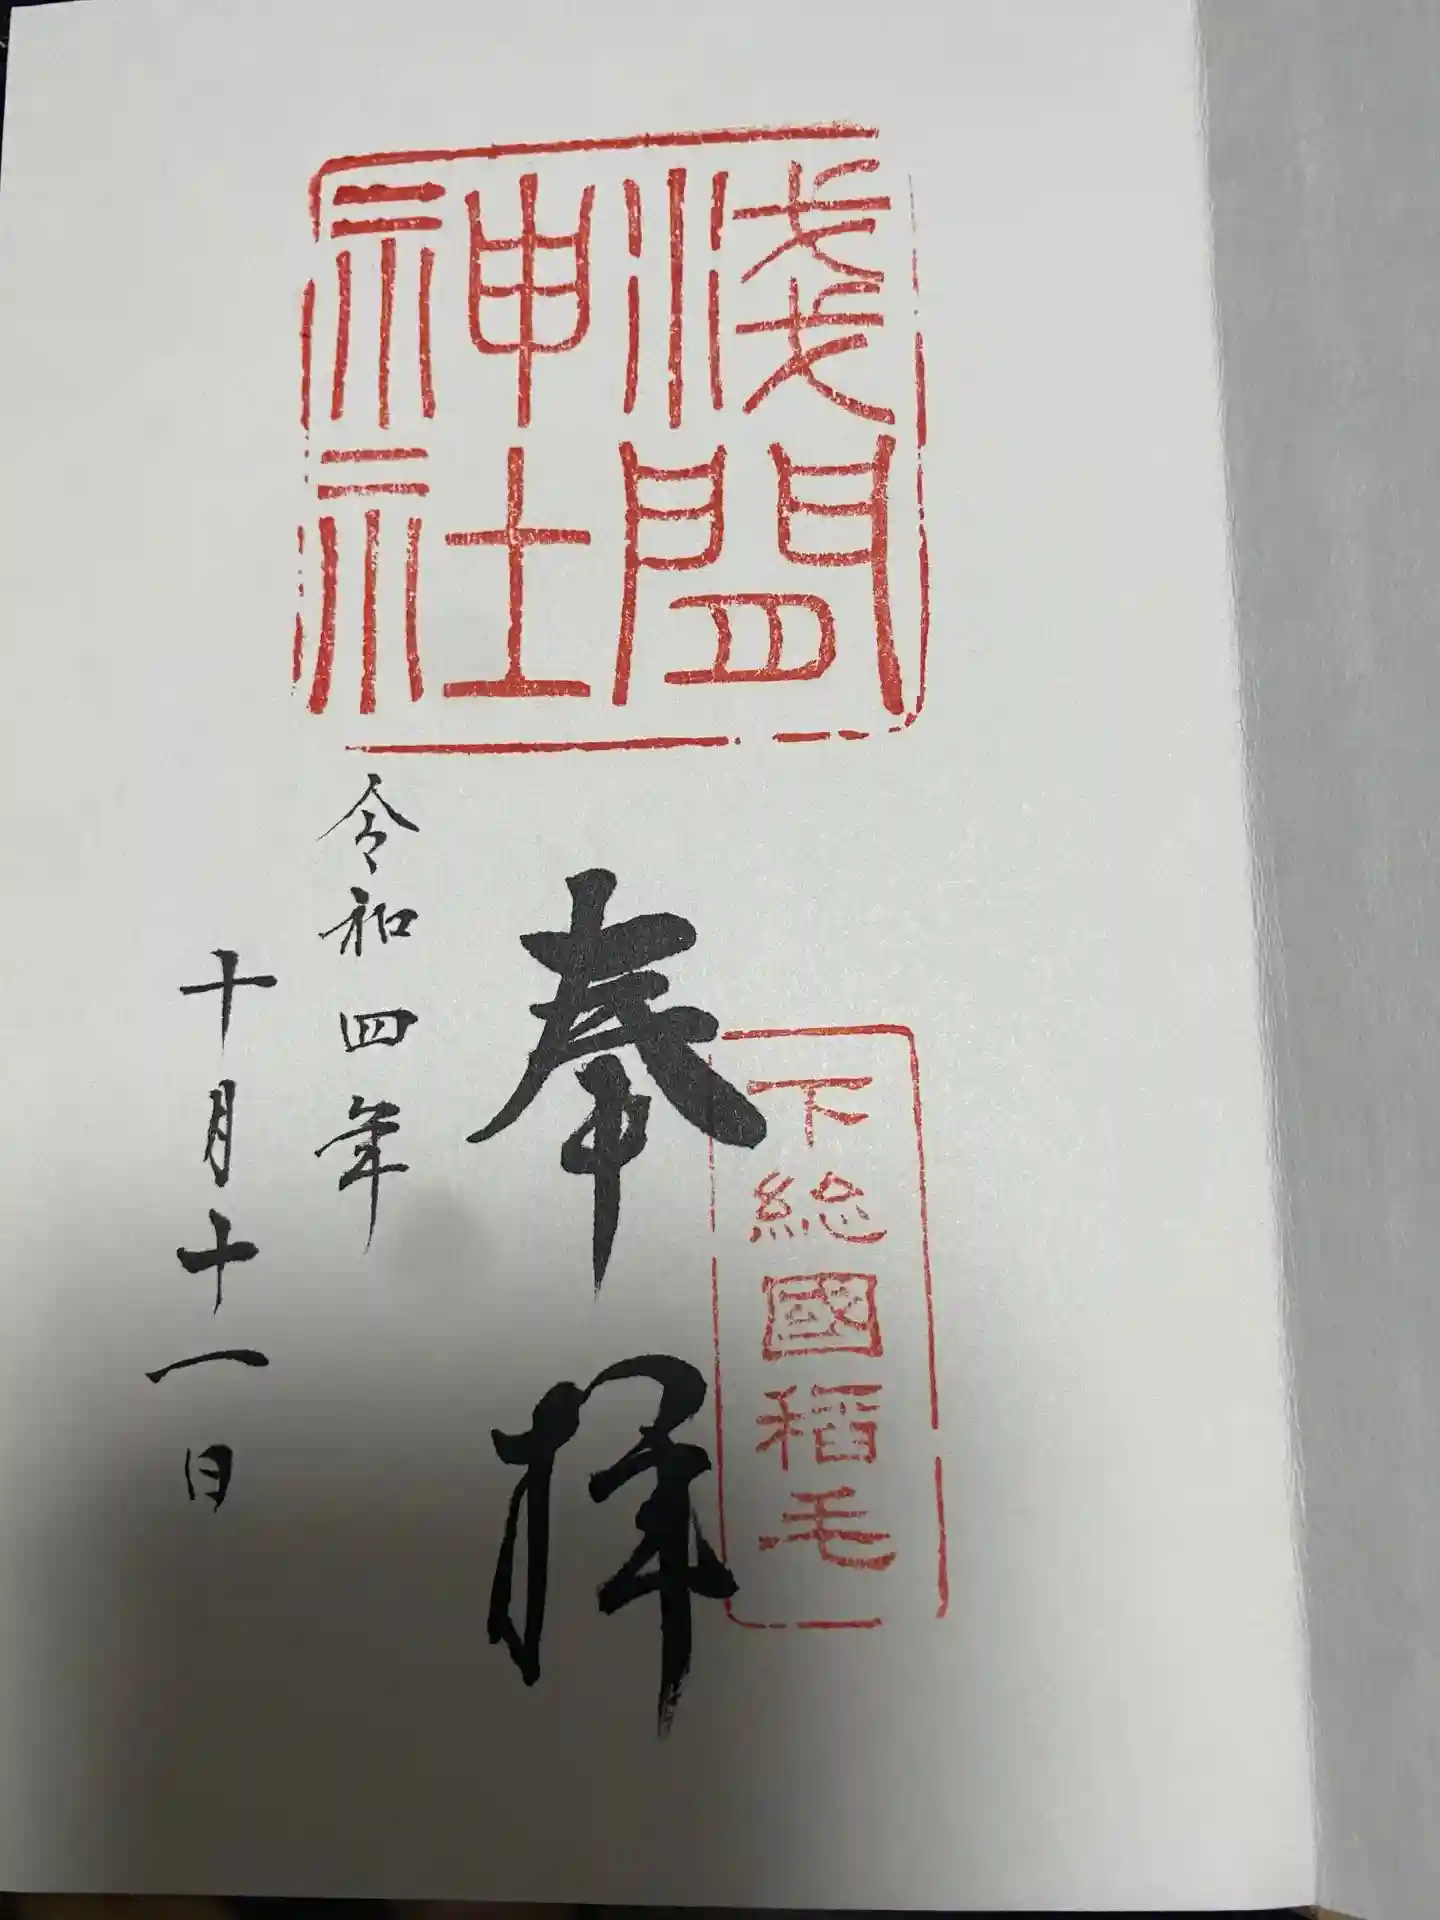 淺間
神社
下総國稲毛
奉拝
令和四年
十月十一日